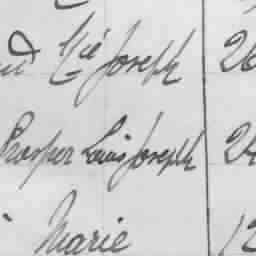 Joseph 26
Prosper Louis Joseph 24
Marie 12